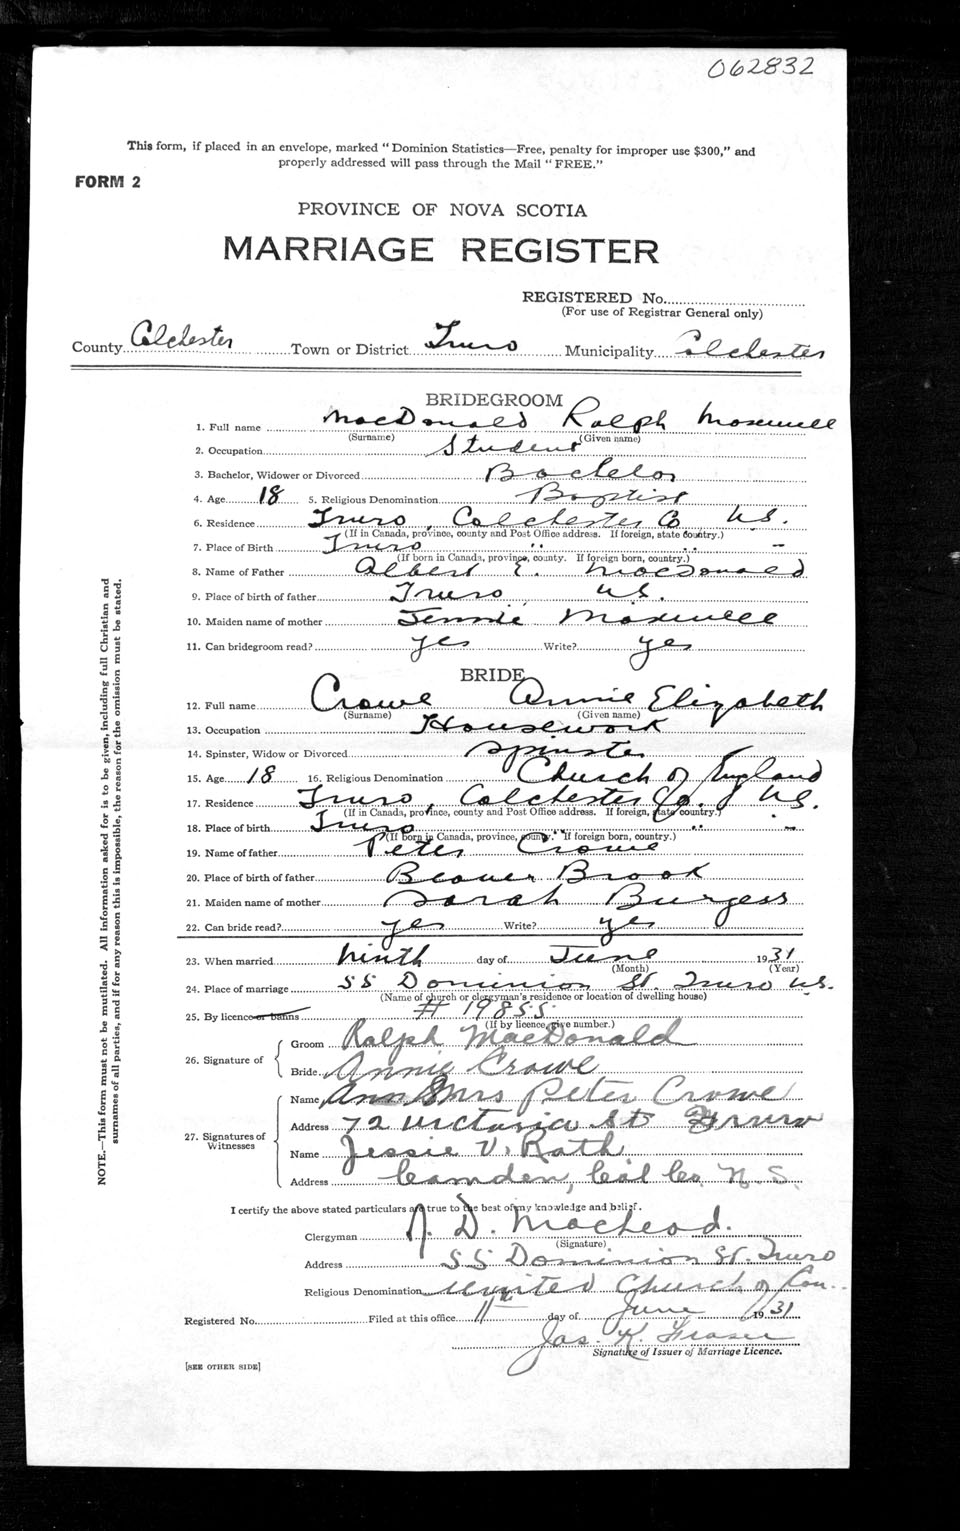 062832
This form, if placed in an envelope, marked "Dominion Statistics—Free, penalty for improper use $300," and
properly addressed will pass through the Mail "FREE."
FORM 2
PROVINCE OF NOVA SCOTIA
MARRIAGE REGISTER
REGISTERED No.
(For use of Registrar General only)
County Colchester Town or District Truro Municipality Colchester
BRIDEGROOM
1. Full name MacDonald Ralph Maxwell
(Surname) (Given name)
2. Occupation Student
3. Bachelor, Widower or Divorced Bachelor
4. Age 18 5. Religious Denomination Baptist
6. Residence Truro, Colchester Co N.S.
(If in Canada, province, county and Post Office address. If foreign, state country.)
7. Place of Birth Truro " "
(If born in Canada, province, county. If foreign born, country.)
8. Name of Father Albert E. MacDonald
9. Place of birth of father Truro, N.S.
10. Maiden name of mother Jennie Maxwell
11. Can bridegroom read? yes Write? yes
BRIDE
12. Full name Crowe Annie Elizabeth
(Surname) (Given name)
13. Occupation Housework
14. Spinster, Widow or Divorced Spinster
15. Age 18 16. Religious Denomination Church of England
17. Residence Truro, Colchester Co. N.S.
(If in Canada, province, county and Post Office address. If foreign, state country.)
18. Place of birth Truro " "
(If born in Canada, province, county. If foreign born, country.)
19. Name of father Peter Crowe
20. Place of birth of father Beaver Brook
21. Maiden name of mother Sarah Burgess
22. Can bride read? yes Write? yes
23. When married ninth day of June 1931
(Month) (Year)
24. Place of marriage 55 Dominion St. Truro N.S.
(Name of church or clergyman's residence or location of dwelling house)
25. By licence or banns # 19855
(If by licence, give number.)
26. Signature of
Groom Ralph MacDonald
Bride Annie Crowe
27. Signatures of Witnesses
Name Mrs Peter Crowe
Address 72 Victoria St Truro
Name Jessie V. Rath
Address Camden, Col Co. N.S.
I certify the above stated particulars are true to the best of my knowledge and belief.
Clergyman D. MacLeod.
(Signature)
Address 55 Dominion St. Truro
Religious Denomination United Church of Can.
Registered No. Filed at this office 11th day of June 1931
Jas. K. Fraser
Signature of Issuer of Marriage Licence.
[SEE OTHER SIDE]
NOTE.—This form must not be mutilated. All information asked for is to be given, including full Christian and
surnames of all parties, and if for any reason this is impossible, the reason for the omission must be stated.